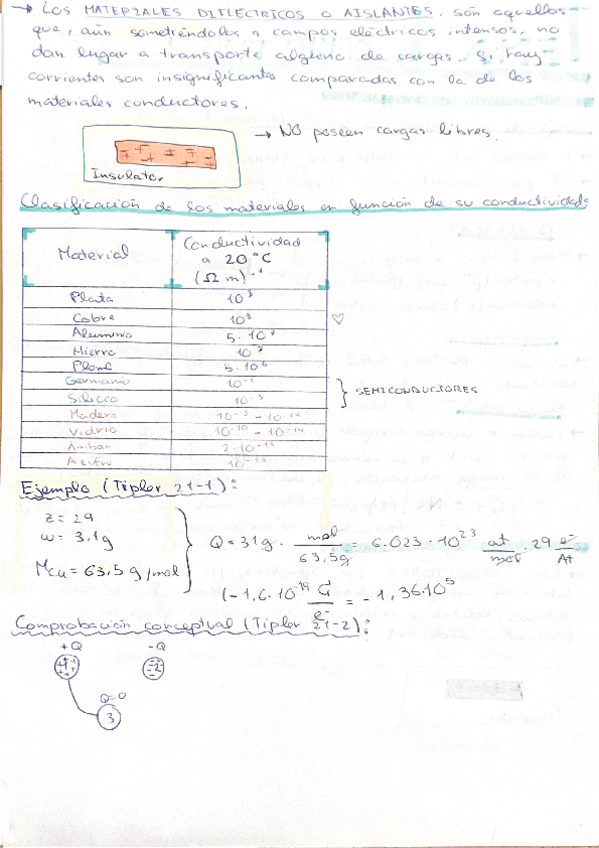 → Los MATERIALES DIELÉCTRICOS O AISLANTES, són aquellos
que, aún sometiéndolos a campos eléctricos intensos, no
dan lugar a transporte alguno de cargas. Si hay
corrientes son insignificantes comparadas con la de los
materiales conductores.
→ NO poseen cargas libres.
Insulator
Clasificación de los materiales en función de su conductividad:
Material Conductividad a 20°C (Ω m)⁻¹
Plata 10⁸
Cobre 10⁸
Aluminio 5·10⁷
Hierro 10⁷
Plomo 5·10⁶
Germanio 10⁻¹
Silicio 10⁻³
} SEMICONDUCTORES
Madera 10⁻⁸ - 10⁻¹⁴
Vidrio 10⁻¹⁰ - 10⁻¹⁴
Ámbar 2·10⁻¹⁴
Azufre 10⁻¹⁵
Ejemplo (Tipler 21-1):
z = 29
ω = 3,1g
M_Cu = 63,5 g/mol
Q = 31g · mol/63,5g = 6.023·10²³ at/mol · 29 e⁻/At
(-1,6·10⁻¹⁹ C/e⁻ = -1,36·10⁵
Comprobación conceptual (Tipler 21-2):
+Q -Q
Q=0
3